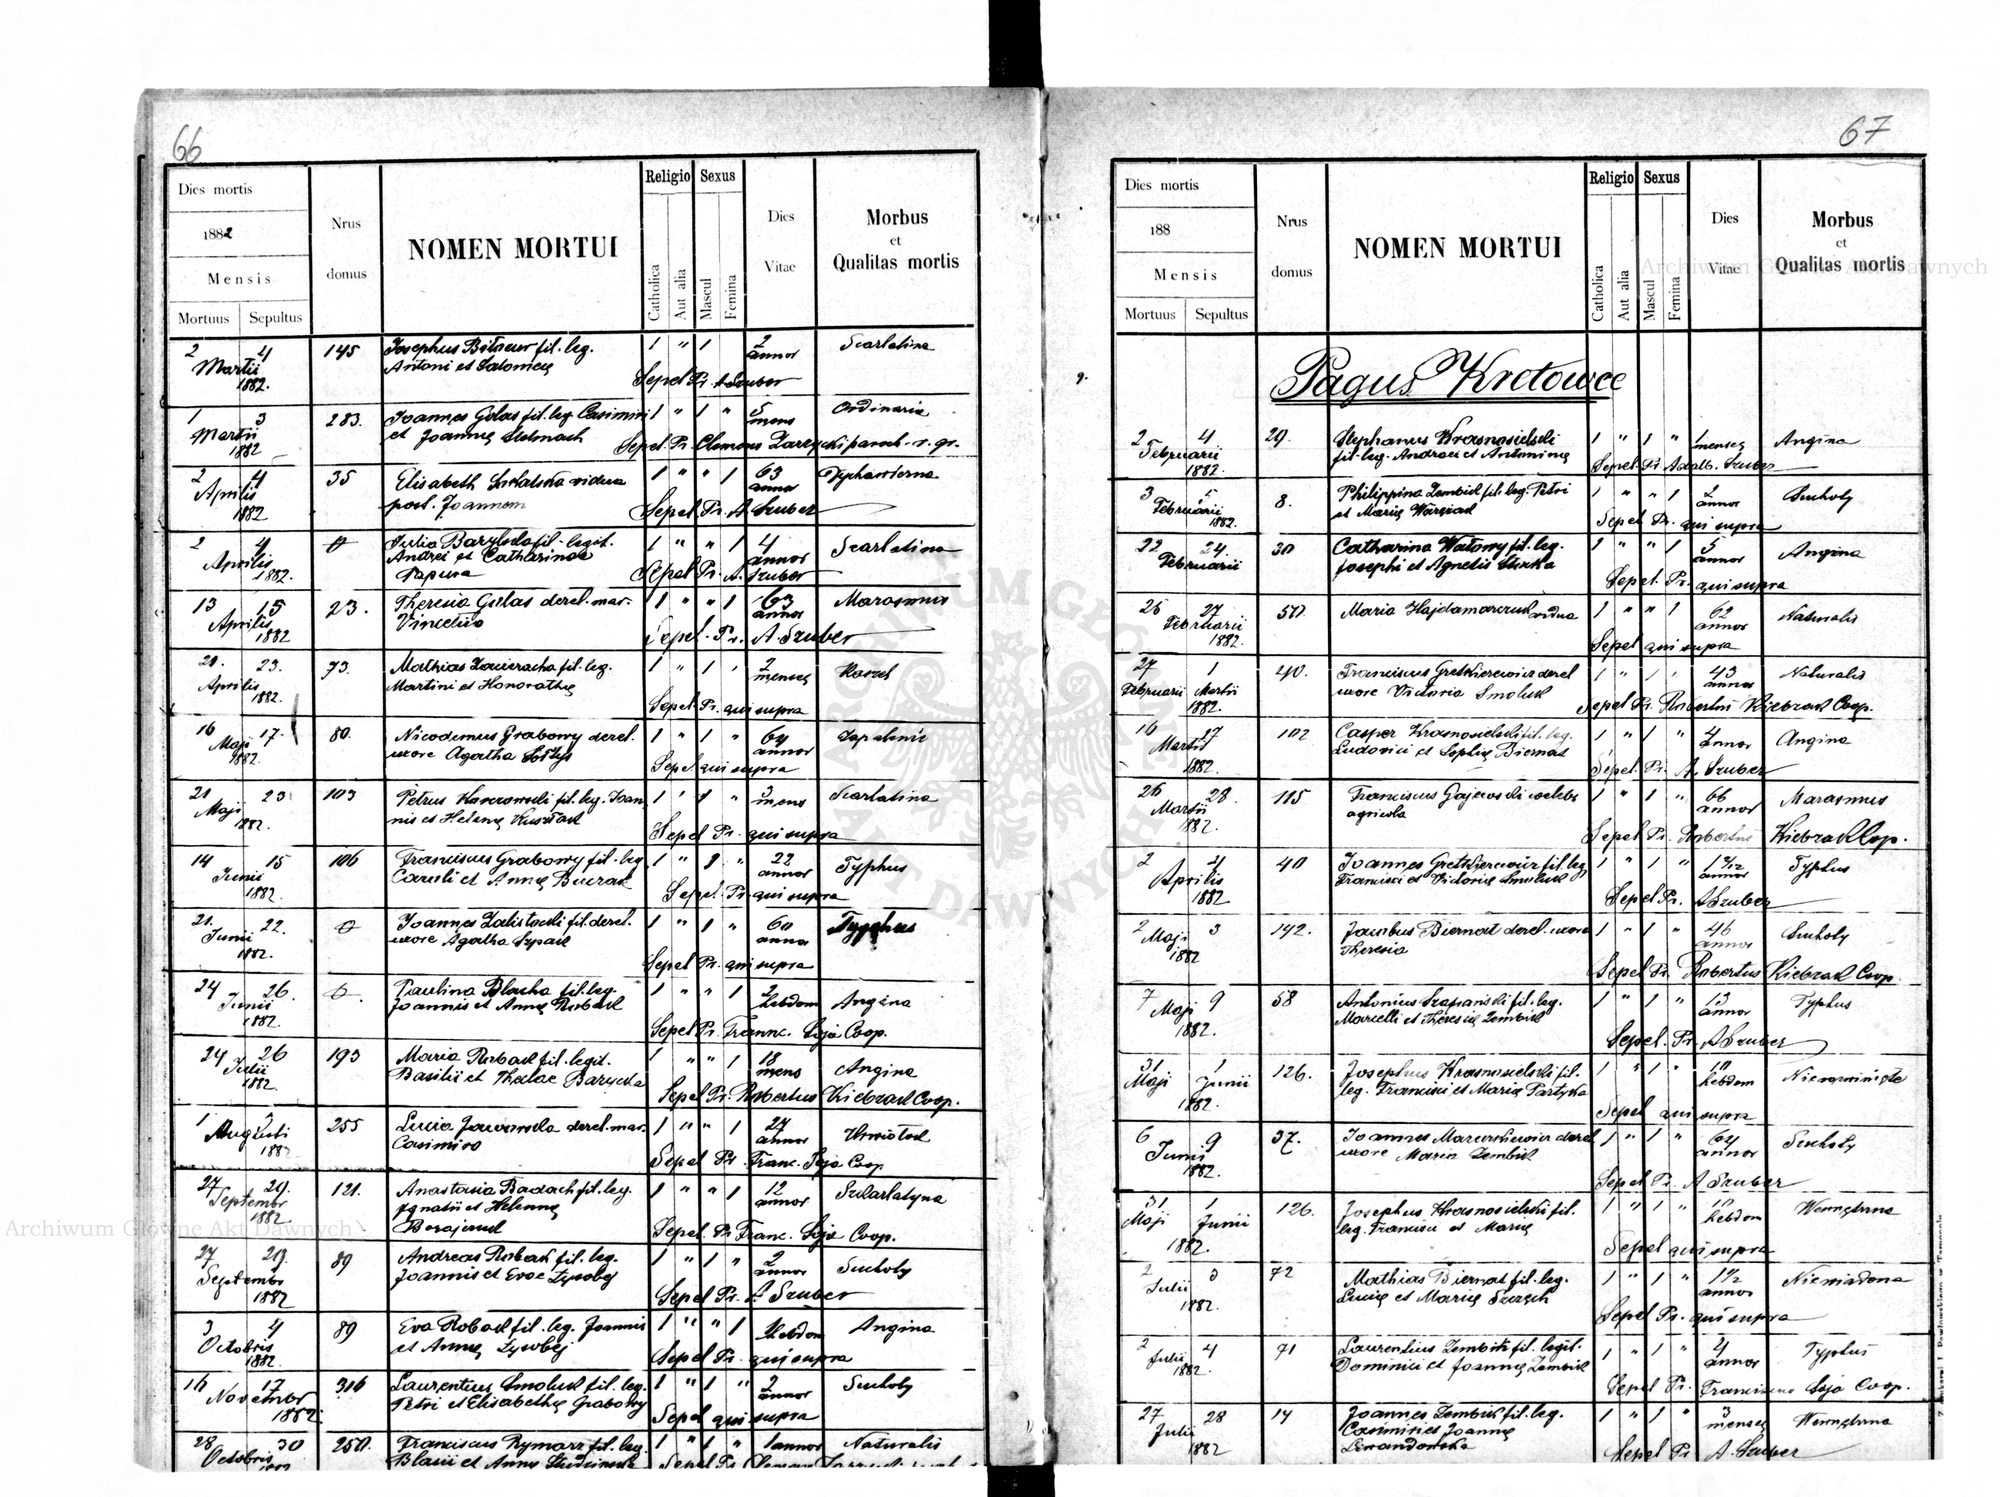 66
Dies mortis
1882
Mensis
Mortuus Sepultus
Nrus domus
NOMEN MORTUI
Religio
Catholica
Aut alia
Sexus
Mascul
Femina
Dies Vitae
Morbus et Qualitas mortis
2 4 145 Josephus fil. leg. 1 " 1 2 Scarlatina
Martii Antoni et Salomeę annor
1882. Sepel Pr. A Szuber
1 3 283. Joannes Gulas fil. leg. Casimiri 1 " 1 " 5 Ordinaria
Martii et Joannę Stelmach mens
1882 Sepel. Pr. Clemens Zarzycki paroch. r. gr.
2 4 35 Elisabeth vidua 1 " " 1 63
Aprilis post. Joannem annor
1882 Sepel. Pr. A. Szuber
2 4 0 Julia fil. legit. 1 " " 1 4 Scarlatina
Aprilis Andrei et Catharinae annor
1882. Papura Sepel Pr. A. Szuber
13 15 23. Theresia Gulas derel. mar. 1 " " 1 63 Marasmus
Aprilis Vincetio annor
1882 Sepel. Pr. A. Szuber
21. 23. 73. Mathias fil. leg. 1 " 1 " 2 Kaszel
Aprilis Martini et Honorathę menseş
1882. Sepel Pr. qui supra
16 17. 80. Nicodemus Grabowy derel. 1 " 1 " 64 Zapalenie
Maji uxore Agatha Sołtys annor
1882. Sepel qui supra
21 23 103 Petrus fil. leg. Joan 1 " 1 " Scarlatina
Maji nis et Helenę mens
1882. Sepel Pr. qui supra
14 15 106 Franciscus Grabowy fil. leg 1 " 1 " 22 Typhus
Junii Caroli et Annę annor
1882. Sepel. Pr. qui supra
21. 22. 0 Joannes fil. derel. 1 " 1 " 60 Typhus
Junii uxore Agatha annor
1882. Sepel Pr. qui supra
24 26. 0. Paulina Blacha fil. leg. 1 " " 1 2 Angina
Junii Joannis et Annę Robak hebdom
1882. Sepel Pr. Franc. Soja Coop.
24 26 193 Maria Robak fil. legit. 1 " " 1 18 Angina
Julii Basilii et Theclae mens
1882. Sepel Pr. Robertus Kiebzak Coop.
1 3 255 Lucia derel. mar. 1 " " 1 24
Augusti Casimiro annor
1882 Sepel Pr. Franc. Soja Coop
27 29. 121. Anastasia Badach fil. leg. 1 " " 1 12 Szkarlatyna
Septembr Ignatii et Helennę annor
1882 Sepel. Pr Franc. Soja Coop.
27 29. 89 Andreas Robak fil. leg. 1 " 1 " 2 Suchoty
Septembr Joannis et Evae annor
1882 Sepel Pr. A Szuber
3 4 89 Eva Robak fil. leg. Joannis 1 " " 1 Angina
Octobris et Annę hebdom
1882. Sepel Pr. qui supra
16 17 316 Laurentius Smoluk fil. leg. 1 " 1 " 2 Suchoty
Novembr Petri et Elisabethę Grabowy annor
1882 Sepel qui supra
28 30 250. Franciscus Rymarz fil. leg. 1 " 1 " 1 annor Naturalis
Octobris Blasii et Annę
67
Dies mortis
188
Mensis
Mortuus Sepultus
Nrus domus
NOMEN MORTUI
Religio
Catholica
Aut alia
Sexus
Mascul
Femina
Dies Vitae
Morbus et Qualitas mortis
Pagus Kretowce
2 4 29. Stephanus Krasnosielski 1 " 1 " 1 Angina
Februarii fil. leg. Andreei et Antoninę menseş
1882. Sepel. Pr. Adalb. Szuber
3 5 8. Philippina Zembik fil. leg. Petri 1 " " 1 2 Suchoty
Februarii et Marię annor
1882. Sepel Pr. qui supra
22 24. 30 Catharina Watowy fil. leg. 1 " " 1 5 Angina
Februarii Josephi et Agnetis annor
Sepel. Pr. qui supra
25 27 Maria vidua 1 " " 1 62 Naturalis
Februarii annor
1882. Sepel qui supra
27 1 40. Franciscus derel 1 " 1 " 43 Naturalis
Februarii Martii uxore Victoria Smoluk annor
1882. Sepel Pr Robertus Kiebzak Coop.
16 17 102 Casper Krasnosielski fil. leg. 1 " 1 " 4 Angina
Martii Ludovici et Sophię Biernat annor
1882. Sepel. Pr. A. Szuber
26 28 115 Franciscus Gajewski 1 " 1 " 66 Marasmus
Martii agricola annor
1882. Sepel Pr. Robertus Kiebzak Cop.
2 4 40 Joannes fil. leg 1 " 1 " Typhus
Aprilis Francisci et Victorię Smoluk annor
1882 Sepel Pr. A Szuber
2 3 142. Jacobus Biernat derel. uxore 1 " 1 " 46 Suchoty
Maji Theresia annor
1882 Sepel Pr. Robertus Kiebzak Coop.
7 9 58 Antonius Szafrański fil. leg. 1 " 1 " 13 Typhus
Maji Marcelli et Theresię Zembik annor
1882. Sepel. Pr. A Szuber
31 1 126. Josephus Krasnosielski fil. 1 " 1 "
Maji Junii leg. Francisci et Marię Partyka hebdom
1882. Sepel qui supra
6 9 37. Joannes derel 1 " 1 " 64 Suchoty
Junii uxore Maria Zembik annor
1882. Sepel Pr. A Szuber
31 1 126. Josephus Krasnosielski fil. 1 " 1 " Wewnętrzna
Maji Junii leg. Francisci et Marię hebdom
1882. Sepel qui supra
2 3 72 Mathias Biernat fil. leg. 1 " 1 " 1 1/2 Niewiadoma
Julii et Marię annor
1882. Sepel Pr. qui supra
2 4 71 Laurentius Zembik fil. legit. 1 " 1 " 4 Typhus
Julii Dominici et Joannę Zembik annor
1882. Sepel Pr. Franciscus Soja Coop.
27 28 14 Joannes Zembik fil. leg. 1 " 1 " 3 Wewnętrzna
Julii Casimiri et Joannę menseş
1882 Lewandowska Sepel Pr. A. Szuber
Archiwum Główne Akt Dawnych
Archiwum Główne Akt Dawnych
ARCHIWUM GŁÓWNE AKT DAWNYCH